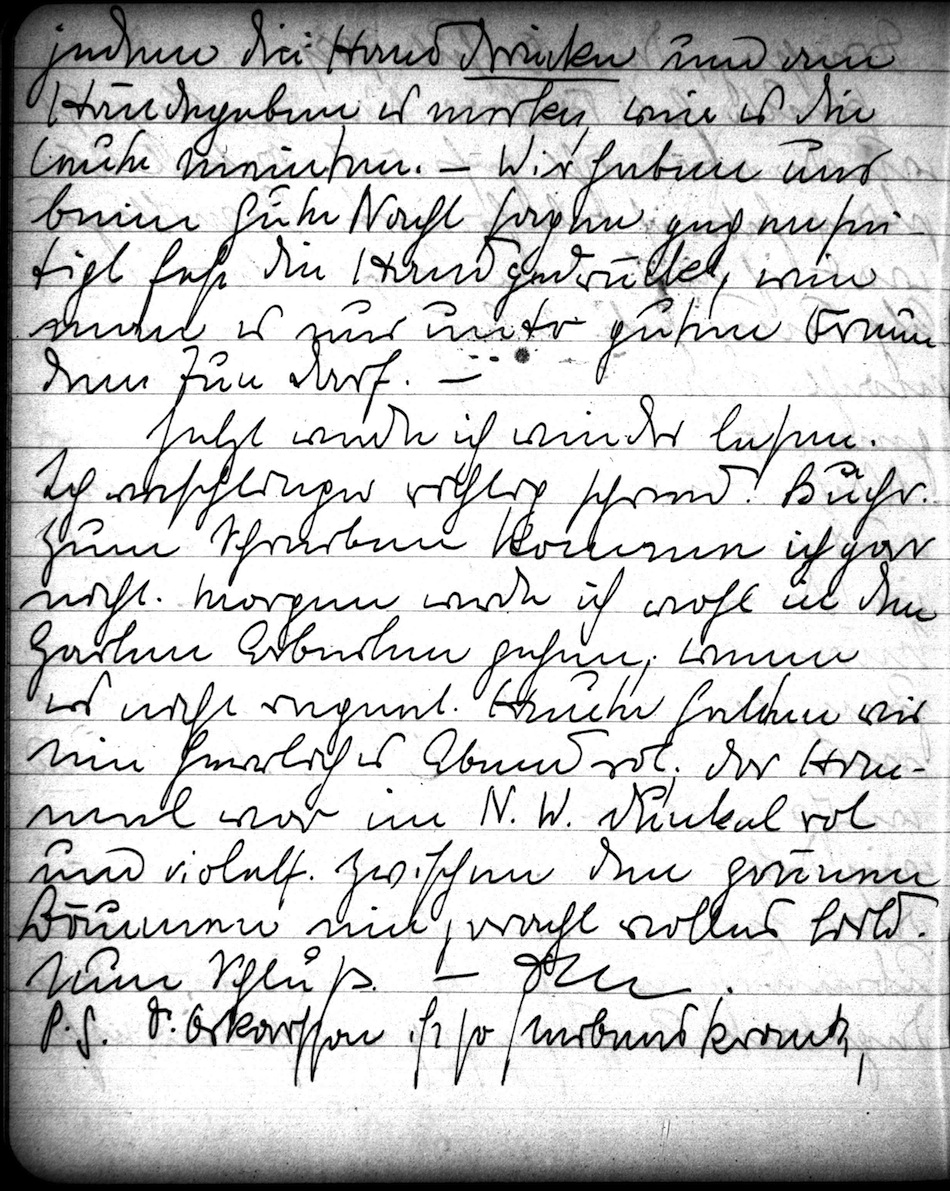 jedem die Hand drücken und am
Händegeben es merken, wie es die
Leute meinten. – Wir haben uns
beim Gute Nacht sagen gegensei-
tigt fest die Hand gedrückt, wie
man es nur unter guten Freun
den tun darf. –
Jetzt werde ich wieder lesen.
Ich verschlinge richtig schwed. Büchr.
Zum Schreiben komme ich gar
nicht. Morgen werde ich wohl in den
Garten Arbeiten gehen, wenn
es nicht regnet. Heute hatten wir
ein herrliches Abendrot, der Him-
mel war im N. W. dunkel rot
und violett. Zwischen den grünen
Bäumen ein prachtvolles Bild.
Nun Schluß. –
P.S. Oskarsson ist so sterbenskrank,